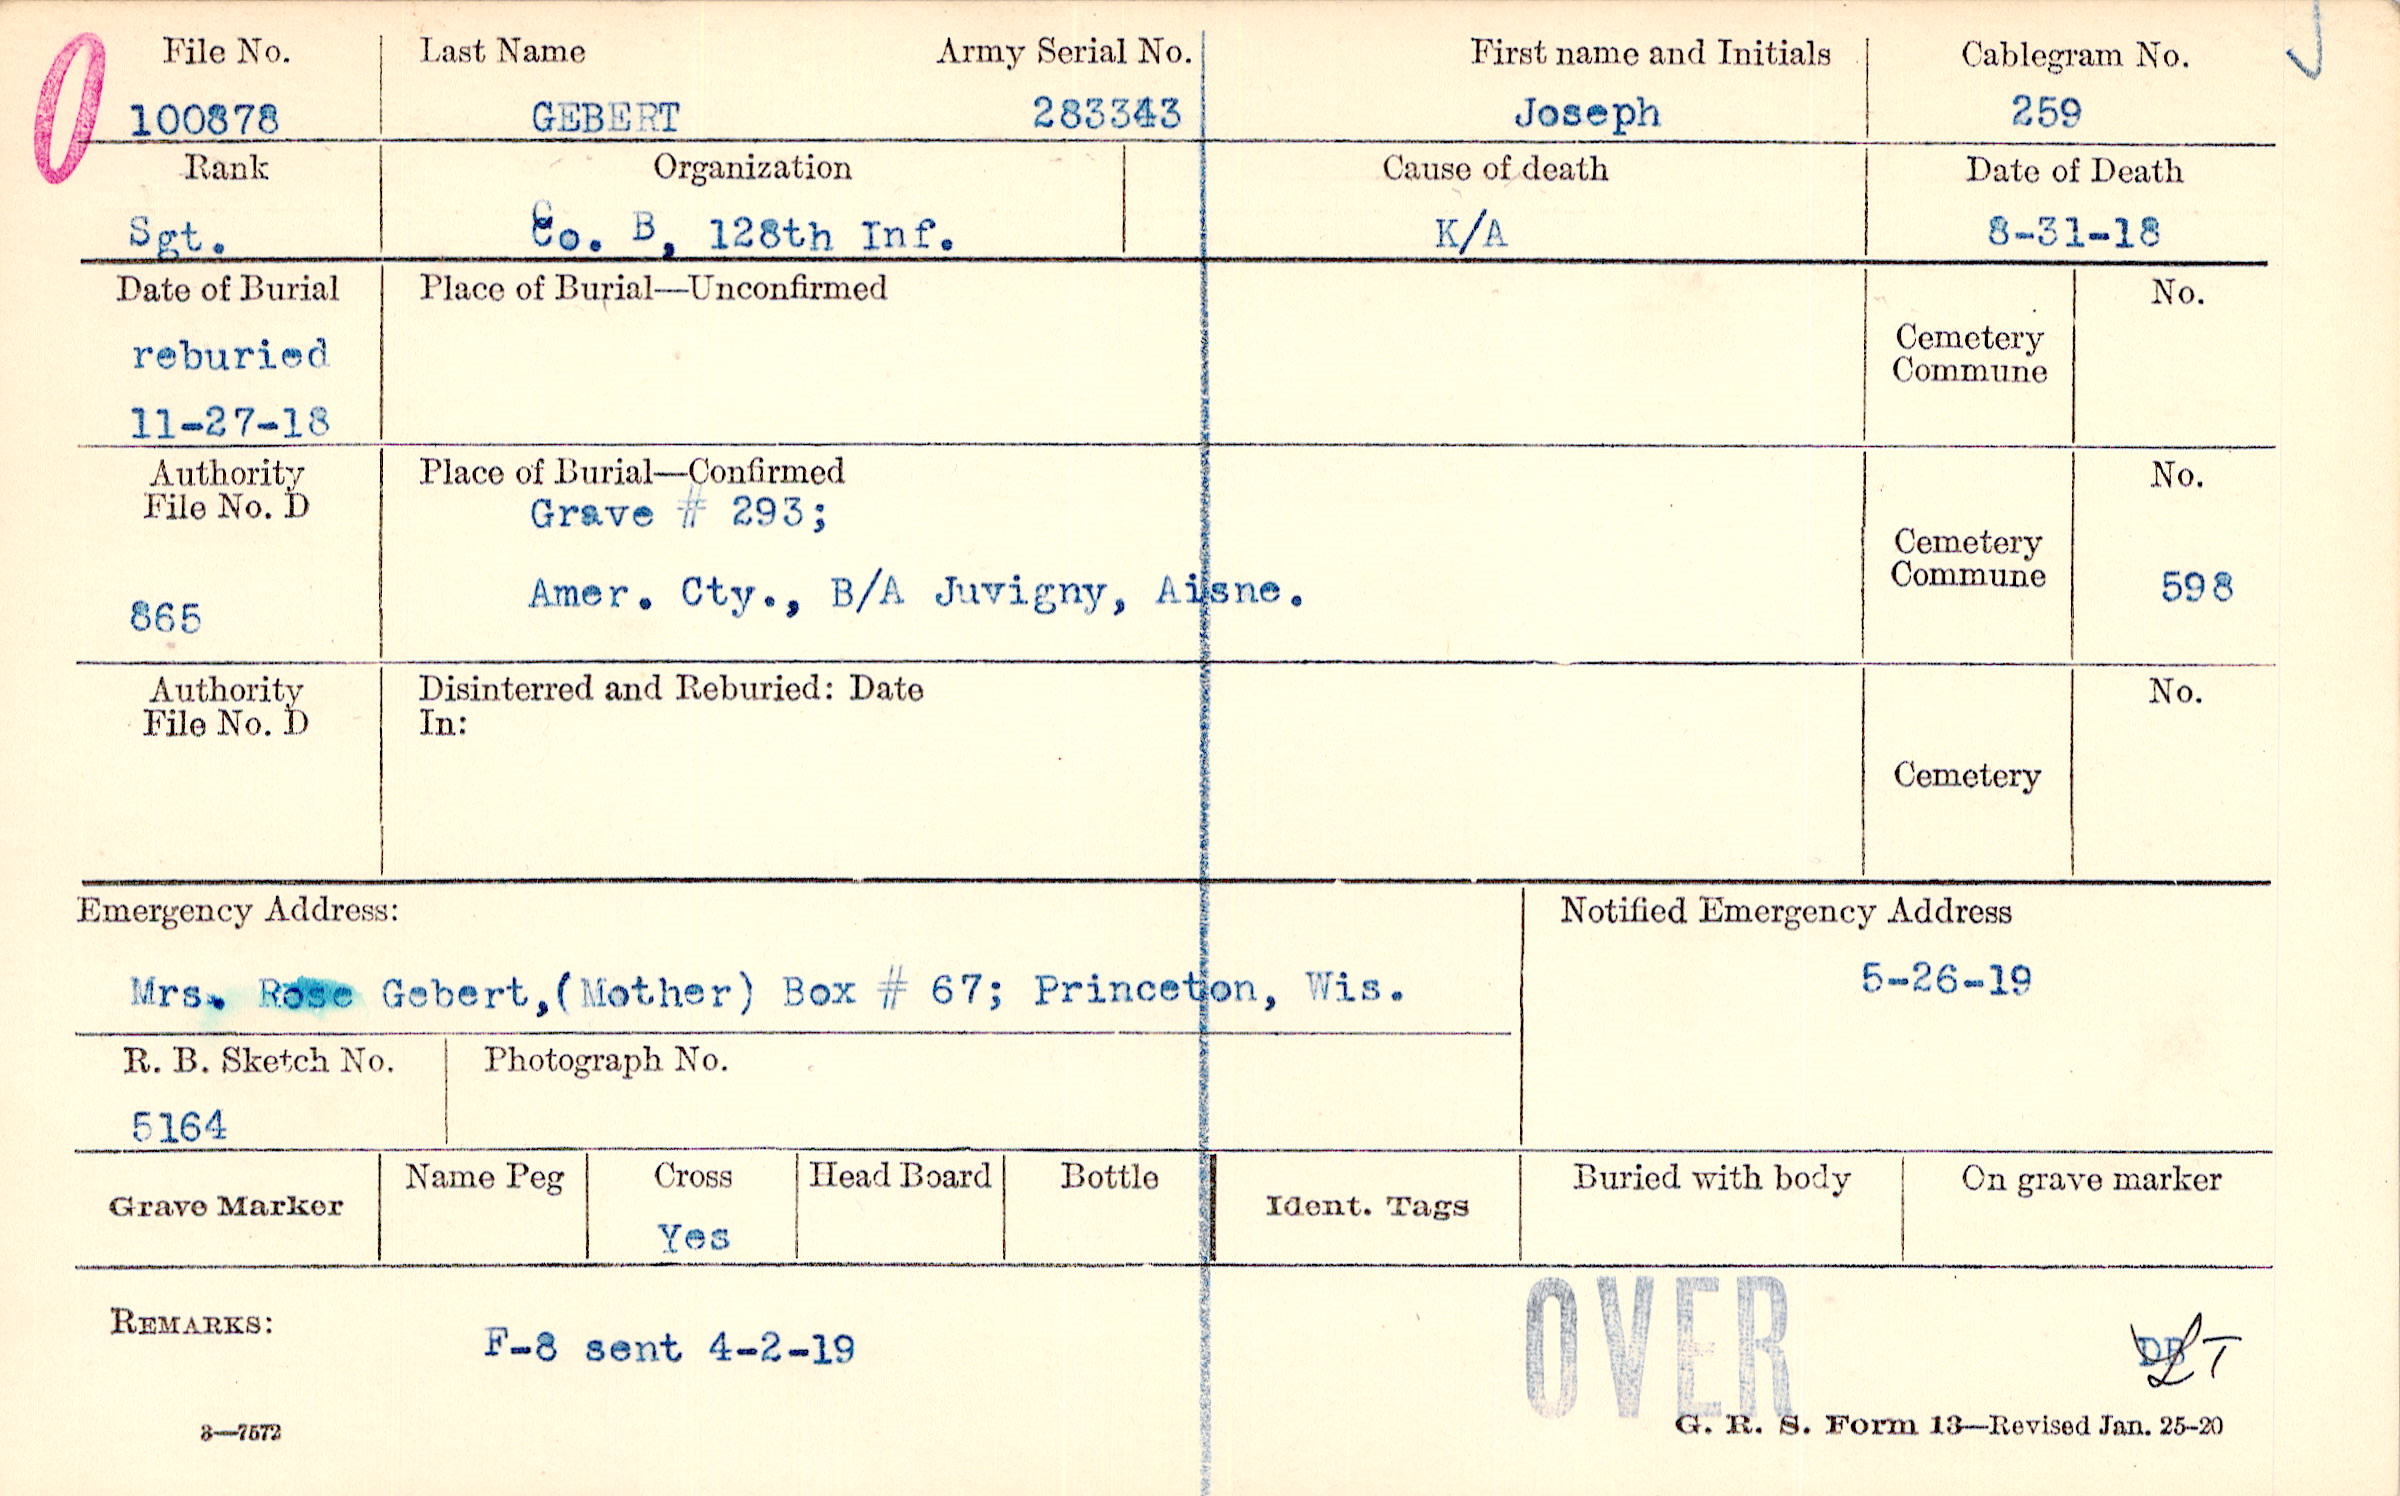 File No. Last Name Army Serial No. First name and Initials Cablegram No.
100878 GEBERT 283343 Joseph 259
Rank Organization Cause of death Date of Death
Sgt. Co. B, 128th Inf. K/A 8-31-18
Date of Burial Place of Burial—Unconfirmed No.
Cemetery
Commune
reburied
11-27-18
Authority Place of Burial—Confirmed No.
File No. D
Grave # 293;
Cemetery
Commune
865 Amer. Cty., B/A Juvigny, Aisne. 598
Authority Disinterred and Reburied: Date No.
File No. D In:
Cemetery
Emergency Address: Notified Emergency Address
Mrs. Rose Gebert,(Mother) Box # 67; Princeton, Wis. 5-26-19
R. B. Sketch No. Photograph No.
5164
Grave Marker Name Peg Cross Head Board Bottle Ident. Tags Buried with body On grave marker
Yes
REMARKS: F-8 sent 4-2-19
OVER
DB
3—7572 G. R. S. Form 13—Revised Jan. 25-20